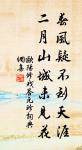 春風疑不到天涯
二月山城未見花
歐陽修戲答元珍詞典
網集